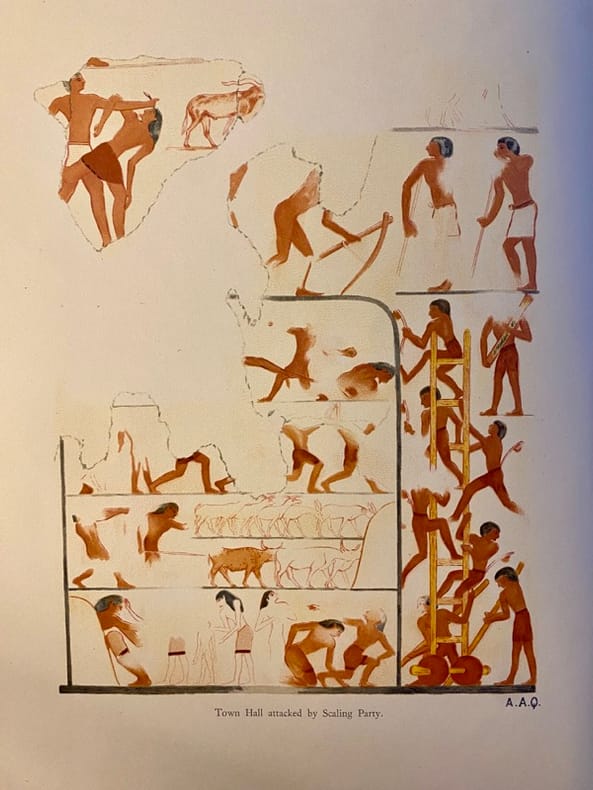 A.A.Q.
Town Hall attacked by Scaling Party.